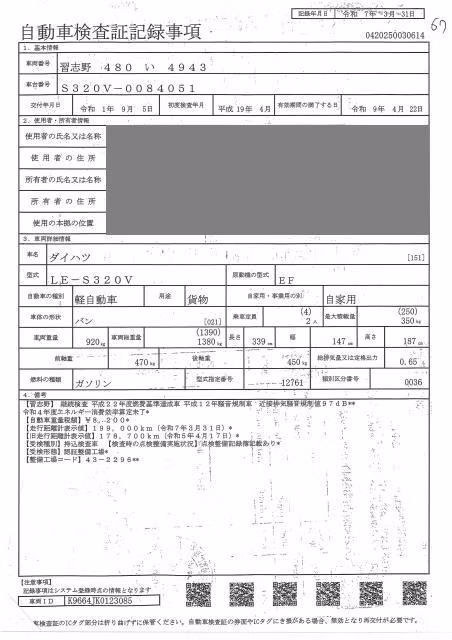 記録年月日 令和 7年 3月 31日
67
自動車検査証記録事項 0420250030614
1. 基本情報
車両番号 習志野 480 い 4943
車台番号 S320V-0084051
交付年月日 令和 1年 9月 5日 初度検査年月 平成 19年 4月 有効期間の満了する日 令和 9年 4月 22日
2. 使用者・所有者情報
使用者の氏名又は名称
使用者の住所
所有者の氏名又は名称
所有者の住所
使用の本拠の位置
3. 車両詳細情報
車名 ダイハツ [151]
型式 LE-S320V 原動機の型式 EF
自動車の種別 軽自動車 用途 貨物 自家用・事業用の別 自家用
車体の形状 バン [021] 乗車定員 (4) 2人 最大積載量 (250) 350kg
車両重量 920kg 車両総重量 (1390) 1380kg 長さ 339cm 幅 147cm 高さ 187cm
前軸重 470kg 後軸重 450kg 総排気量又は定格出力 0.65L
燃料の種類 ガソリン 型式指定番号 12761 類別区分番号 0036
4. 備考
【習志野】 継続検査 平成22年度燃費基準達成車 平成12年騒音規制車 近接排気騒音規制値97dB**
令和4年度エネルギー消費効率算定未了*
【自動車重量税額】¥8,200*
【走行距離計表示値】199,000km(令和7年3月31日)*
【旧走行距離計表示値】178,700km(令和5年4月17日)*
【受検種別】持込検査車 【検査時の点検整備実施状況】点検整備記録簿記載あり*
【受検形態】認証整備工場*
【整備工場コード】43-2296**
【注意事項】
記録事項はシステム登録時点の情報となります
車両ID K9664JK0123085
車検査証のICタグ部分は折り曲げずに保管ください。自動車検査証の券面やICタグにき損がある場合、無効となり再交付が必要です。